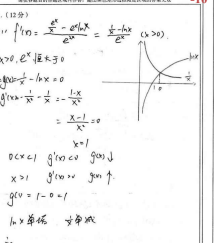 (12分)
f'(x) = \frac{\frac{e^x}{x} - e^x lnx}{e^{2x}} = \frac{\frac{1}{x} - lnx}{e^x} (x>0).
x>0, e^x 恒大于0
g(x) = \frac{1}{x} - lnx = 0
g'(x) = -\frac{1}{x^2} - \frac{1}{x} = -\frac{1-x}{x^2}
= \frac{x-1}{x^2} = 0
x=1
0<x<1 g'(x)<0 g(x)↓
x>1 g'(x)>0 g(x)↑
g(1) = 1-0 = 1
lnx 单增 \frac{1}{x} 单减
lnx
\frac{1}{x}